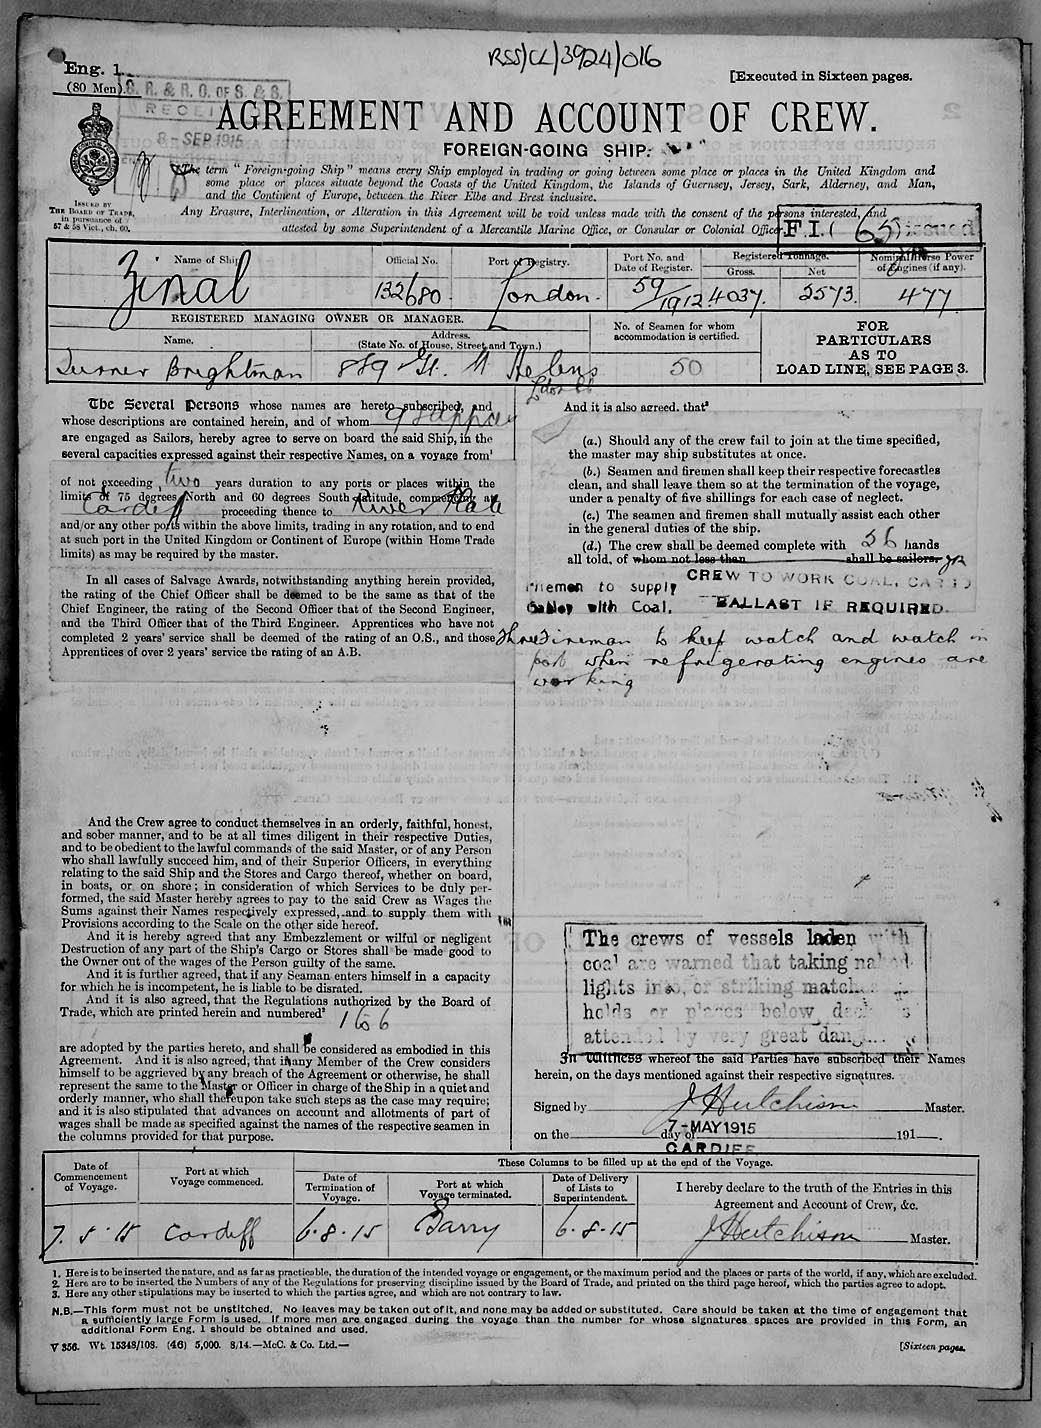 RSS/CL/3924/016
Eng. 1.
(80 Men).
[Executed in Sixteen pages.
C. R. & R. O. OF S. & S.
RECEIV
8- SEP 1915
AGREEMENT AND ACCOUNT OF CREW.
FOREIGN-GOING SHIP.
The term "Foreign-going Ship" means every Ship employed in trading or going between some place or places in the United Kingdom and
some place or places situate beyond the Coasts of the United Kingdom, the Islands of Guernsey, Jersey, Sark, Alderney, and Man,
and the Continent of Europe, between the River Elbe and Brest inclusive.
ISSUED BY
THE BOARD OF TRADE,
in pursuance of
57 & 58 Vict., ch. 60.
Any Erasure, Interlineation, or Alteration in this Agreement will be void unless made with the consent of the persons interested, and
attested by some Superintendent of a Mercantile Marine Office, or Consular or Colonial Officer.
F.I. ( 65) issued
Name of Ship
Official No.
Port of Registry.
Port No. and
Date of Register.
Registered Tonnage.
Gross.
Net
Nominal Horse Power
of Engines (if any).
Zinal
132680.
London.
59/1912
4037.
2573.
477
REGISTERED MANAGING OWNER OR MANAGER.
Name.
Address.
(State No. of House, Street, and Town.)
No. of Seamen for whom
accommodation is certified.
FOR
PARTICULARS
AS TO
LOAD LINE, SEE PAGE 3.
Turner Brightman
8&9 Gt. St Helens
50
The Several Persons whose names are hereto subscribed, and
whose descriptions are contained herein, and of whom
are engaged as Sailors, hereby agree to serve on board the said Ship, in the
several capacities expressed against their respective Names, on a voyage from¹
of not exceeding two years duration to any ports or places within the
limits of 75 degrees North and 60 degrees South latitude, commencing at
Cardiff proceeding thence to River Plate
and/or any other ports within the above limits, trading in any rotation, and to end
at such port in the United Kingdom or Continent of Europe (within Home Trade
limits) as may be required by the master.
In all cases of Salvage Awards, notwithstanding anything herein provided,
the rating of the Chief Officer shall be deemed to be the same as that of the
Chief Engineer, the rating of the Second Officer that of the Second Engineer,
and the Third Officer that of the Third Engineer. Apprentices who have not
completed 2 years' service shall be deemed of the rating of an O.S., and those
Apprentices of over 2 years' service the rating of an A.B.
And the Crew agree to conduct themselves in an orderly, faithful, honest,
and sober manner, and to be at all times diligent in their respective Duties,
and to be obedient to the lawful commands of the said Master, or of any Person
who shall lawfully succeed him, and of their Superior Officers, in everything
relating to the said Ship and the Stores and Cargo thereof, whether on board,
in boats, or on shore; in consideration of which Services to be duly per-
formed, the said Master hereby agrees to pay to the said Crew as Wages the
Sums against their Names respectively expressed, and to supply them with
Provisions according to the Scale on the other side hereof.
And it is hereby agreed that any Embezzlement or wilful or negligent
Destruction of any part of the Ship's Cargo or Stores shall be made good to
the Owner out of the wages of the Person guilty of the same.
And it is further agreed, that if any Seaman enters himself in a capacity
for which he is incompetent, he is liable to be disrated.
And it is also agreed, that the Regulations authorized by the Board of
Trade, which are printed herein and numbered²
1 to 6
are adopted by the parties hereto, and shall be considered as embodied in this
Agreement. And it is also agreed, that if any Member of the Crew considers
himself to be aggrieved by any breach of the Agreement or otherwise, he shall
represent the same to the Master or Officer in charge of the Ship in a quiet and
orderly manner, who shall thereupon take such steps as the case may require;
and it is also stipulated that advances on account and allotments of part of
wages shall be made as specified against the names of the respective seamen in
the columns provided for that purpose.
And it is also agreed, that³
(a.) Should any of the crew fail to join at the time specified,
the master may ship substitutes at once.
(b.) Seamen and firemen shall keep their respective forecastles
clean, and shall leave them so at the termination of the voyage,
under a penalty of five shillings for each case of neglect.
(c.) The seamen and firemen shall mutually assist each other
in the general duties of the ship.
(d.) The crew shall be deemed complete with 26 hands
all told, of whom not less than shall be sailors.
CREW TO WORK COAL, CARGO
BALLAST IF REQUIRED.
Firemen to supply
Galley with Coal.
Three Fireman to keep watch and watch in
port when refrigerating engines are
working
The crews of vessels laden with
coal are warned that taking naked
lights into, or striking matches
holds or places below deck is
attended by very great dang...
In Witness whereof the said Parties have subscribed their Names
herein, on the days mentioned against their respective signatures.
Signed by J Hutchison Master.
on the 7-MAY1915 day of 191 .
CARDIFF
Date of
Commencement
of Voyage.
Port at which
Voyage commenced.
These Columns to be filled up at the end of the Voyage.
Date of
Termination of
Voyage.
Port at which
Voyage terminated.
Date of Delivery
of Lists to
Superintendent.
I hereby declare to the truth of the Entries in this
Agreement and Account of Crew, &c.
7. 5. 15
Cardiff
6.8.15
Barry
6.8.15
J Hutchison Master.
1. Here is to be inserted the nature, and as far as practicable, the duration of the intended voyage or engagement, or the maximum period and the places or parts of the world, if any, which are excluded.
2. Here are to be inserted the Numbers of any of the Regulations for preserving discipline issued by the Board of Trade, and printed on the third page hereof, which the parties agree to adopt.
3. Here any other stipulations may be inserted to which the parties agree, and which are not contrary to law.
N.B.—This form must not be unstitched. No leaves may be taken out of it, and none may be added or substituted. Care should be taken at the time of engagement that
a sufficiently large Form is used. If more men are engaged during the voyage than the number for whose signatures spaces are provided in this Form, an
additional Form Eng. 1 should be obtained and used.
V 356. Wt. 15348/108. (46) 5,000. 8/14.—McC. & Co. Ltd.—
[Sixteen pages.